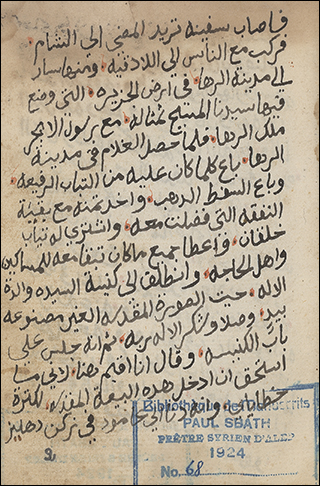 فاصاب سفينه تريد المضى الى الشام.
فركب مع الناس الى اللادقيه. ومنها سار
الى مدينة الرها. فى ارض الجزيره. التى وضع
فيها سيدنا المسيح تمثاله. مع رسول الابجر
ملك الرها. فلما حصل الغلام فى مدينة
الرها. باع كلما كان عليه من التياب الرفيعه.
وباع السفط الدهب. واخد تمنه مع بقية
النفقه التى فضلت معه. واشترى له تياب
خلقان. واعطا جميع ما كان تبقا معه للمساكين
واهل الحاجه. وانطلق الى كنيسة السيده والدة
الاله. حيت الصوره المقدسه الغير مصنوعه
بيدٍ. وصلا وشكر الاله ربه. تم انه جلس على
باب الكنيسه. وقال انا اقيم هاهنا. لانى ما
استحق ان ادخل هده البيعة المقدسه. لكترة
خطاياى
فى ركن دهليز
2
Bibliothèque de Manuscrits
PAUL SBATH
PRÊTRE SYRIEN D'ALEP
1924
No. 68